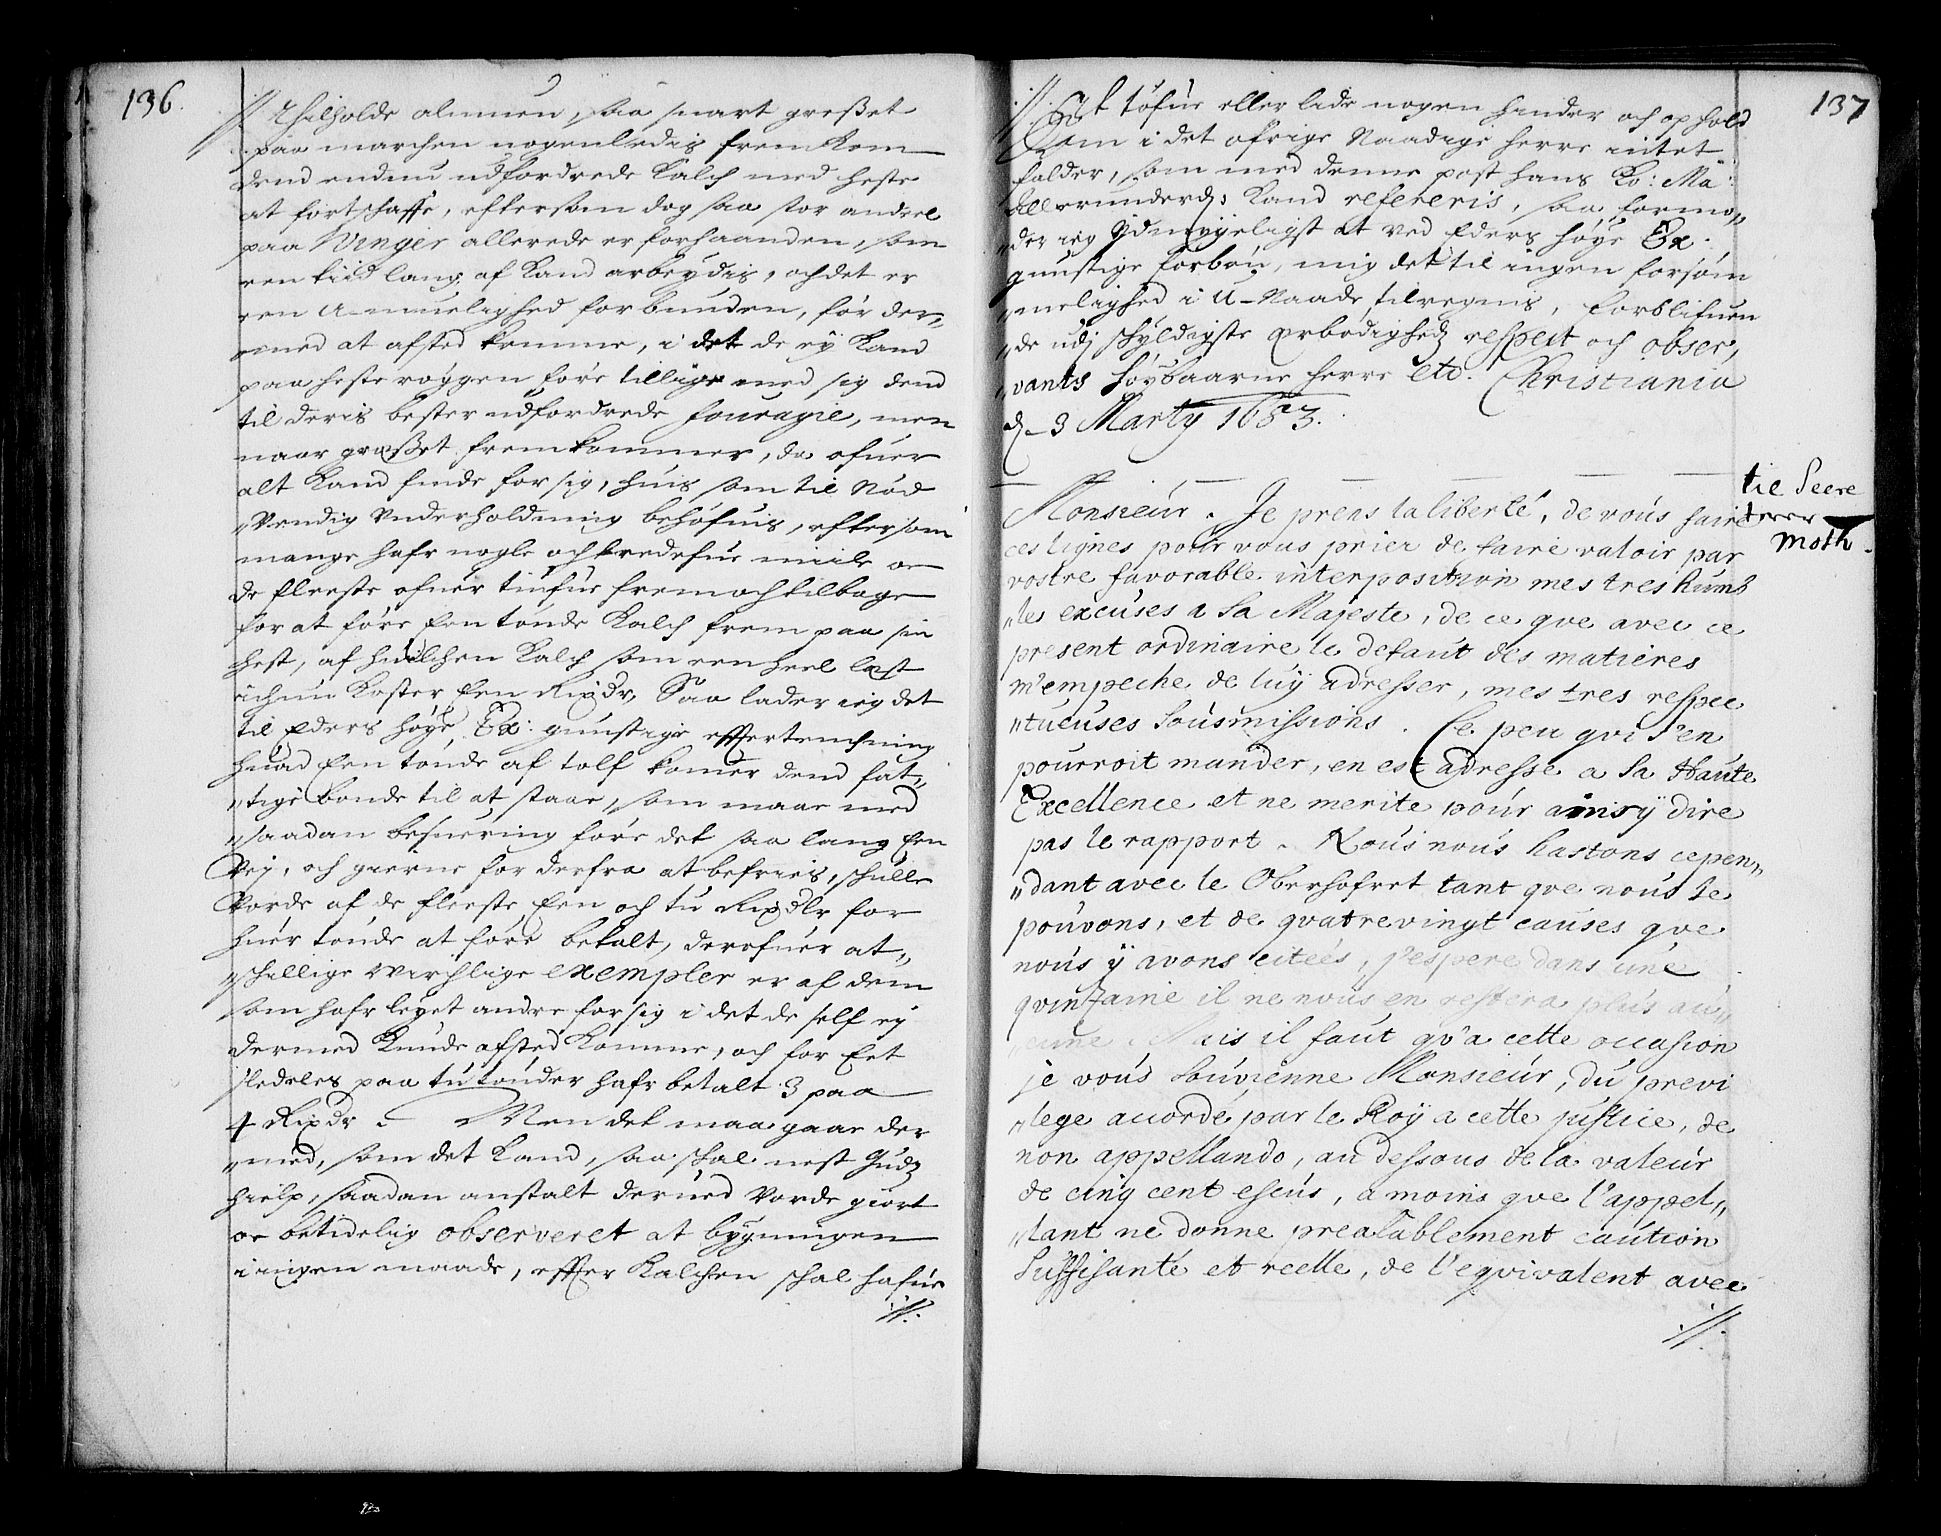 136.
://: tilholde almuen, saa snart græsset
paa marchen nogenledis fremkom
dend endnu udfordrede Kalch med heste
at fortschaffe, eftersom dog saa stor andeel
paa Winger allerede er forhaanden, som
een tiid lang af Kand arbeydis, och det er
een U-muelighed forbunden, før der„
„med at afsted komme, i det de ey Kand
paa heste ryggen føre tillige med sig dend
til deris bester udfordrede fouragie, men
naar græsset fremkommer, da ofuer
alt Kand finde for sig, huis som til Nød
„vendig Underholdning behøfuis, eftersom
mange hafr nogle och tredefue miile oc
de fleeste ofuer tiufue frem och tilbage
for at føre Een tønde Kalch frem paa sin
hest, af huilchen Kalch som een heel læst
ichun Koster Een Rixdr, Saa lader ieg det
til Eders høye Ex: gunstige eftertenchning
huad Een tønde af tolf komer dend fat„
„tige bonde til at staae, som maae med
„saadan besuering føre det saa lang Een
Vej, och gierne for derfra at befries, skulle
Vorde af de fleeste Een och tu Rixdlr for
huer tønde at føre betalt, derofuer at„
„skillige virchlige exempler er af dem
som hafr leyet andre for sig i det de self ey
dermed Kunde afsted Komme, och for Eet
sledeles paa tu tønder hafr betalt 3 paa
4 Rixdr Men det maa gaae der
„med, som det Kand, saa skal nest Gudz
hielp, saadan anstalt derued Vorde giort
oc betidelig observeret at bygningen
i ingen maade, efter Kalchen skal hafue
://:
137
://: Et tøfue eller lide nogen hinder och ophold
Som i det øfrige Naadige herre intet
falder, som med denne post hans Ko: Ma:
allerunderd: Kand refereris, saa formo„
„der ieg Ydmygeligst at ved Eders høye Ex:
gunstige forbøn, mig det til ingen forsøm
„melighed i U-Naade, tilregnis, forblifuen
„de udj skyldigste ærbødighed respect och obser„
„vants Høybaarne Herre etc. Christiania
d. 3 Marty 1683.
til Secre
terer
Moth.
Monsieur. Je prens la liberté, de vous faire
ces lignes pour vous prier de faire valoir par
vostre favorable interposition mes tres humb
„les excuses a Sa Majeste, de ce que avec ce
present ordinaire le defaut des matieres
m'empeche de luy adresser, mes tres respec
„tueuses Sousmissions. Ce peu qui s'en
pourroit mander, en est adressé a Sa Haute
Excellence et ne merite pour ainsy dire
pas le rapport. Nous nous hastons cepen„
„dant avec le Oberhofret tant que nous le
pouvons, et de qvatrevingt causes que
nous ÿ avons citeés, j'espere dans une
qvinzaine il ne nous en restera plus au„
„cune. Mais il faut qu'a cette occasion
je vous souvienne Monsieur, du previ
„lege accordé par le Roÿ a cette justice, de
non appellando, au dessous de la valeur
de cinq cent escus, a moins que l'appel„
„lant ne donne prealablement caution
Suffisante et reelle, de l'eqvivalent avec
://: